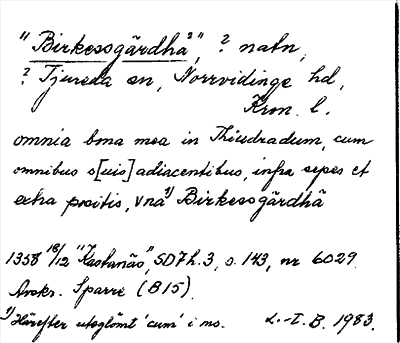 "Birkessgärdhä²", ? natn,
? Tjureda sn, Norrvidinge hd,
Kron. l.
omnia bona mea in Thiudradum, cum
omnibus s[uis] adiacentibus, infra sepes et
extra positis, vna¹⁾ Birkessgärdhä
1358 18/12 "Kastanäs", SD 7 h. 3, s. 143, nr 6029.
Avskr. Sparre (B 15).
¹⁾ Härefter utglömt 'cum' i ms. L.-I. B. 1983.